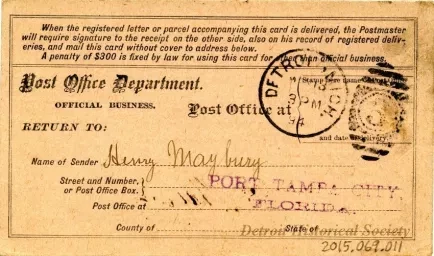 When the registered letter or parcel accompanying this card is delivered, the Postmaster
will require signature to the receipt on the other side, also on his record of registered deliv-
eries, and mail this card without cover to address below.
A penalty of $300 is fixed by law for using this card for other than official business.
Post Office Department.
OFFICIAL BUSINESS.
Post Office at
Stamp here name
DETROIT MICH.
and date
RETURN TO:
Name of Sender Henry Maybury
Street and Number,
or Post Office Box.
PORT TAMPA CITY
Post Office at
FLORIDA
County of
State of
Detroit Historical Society
2015.069.011